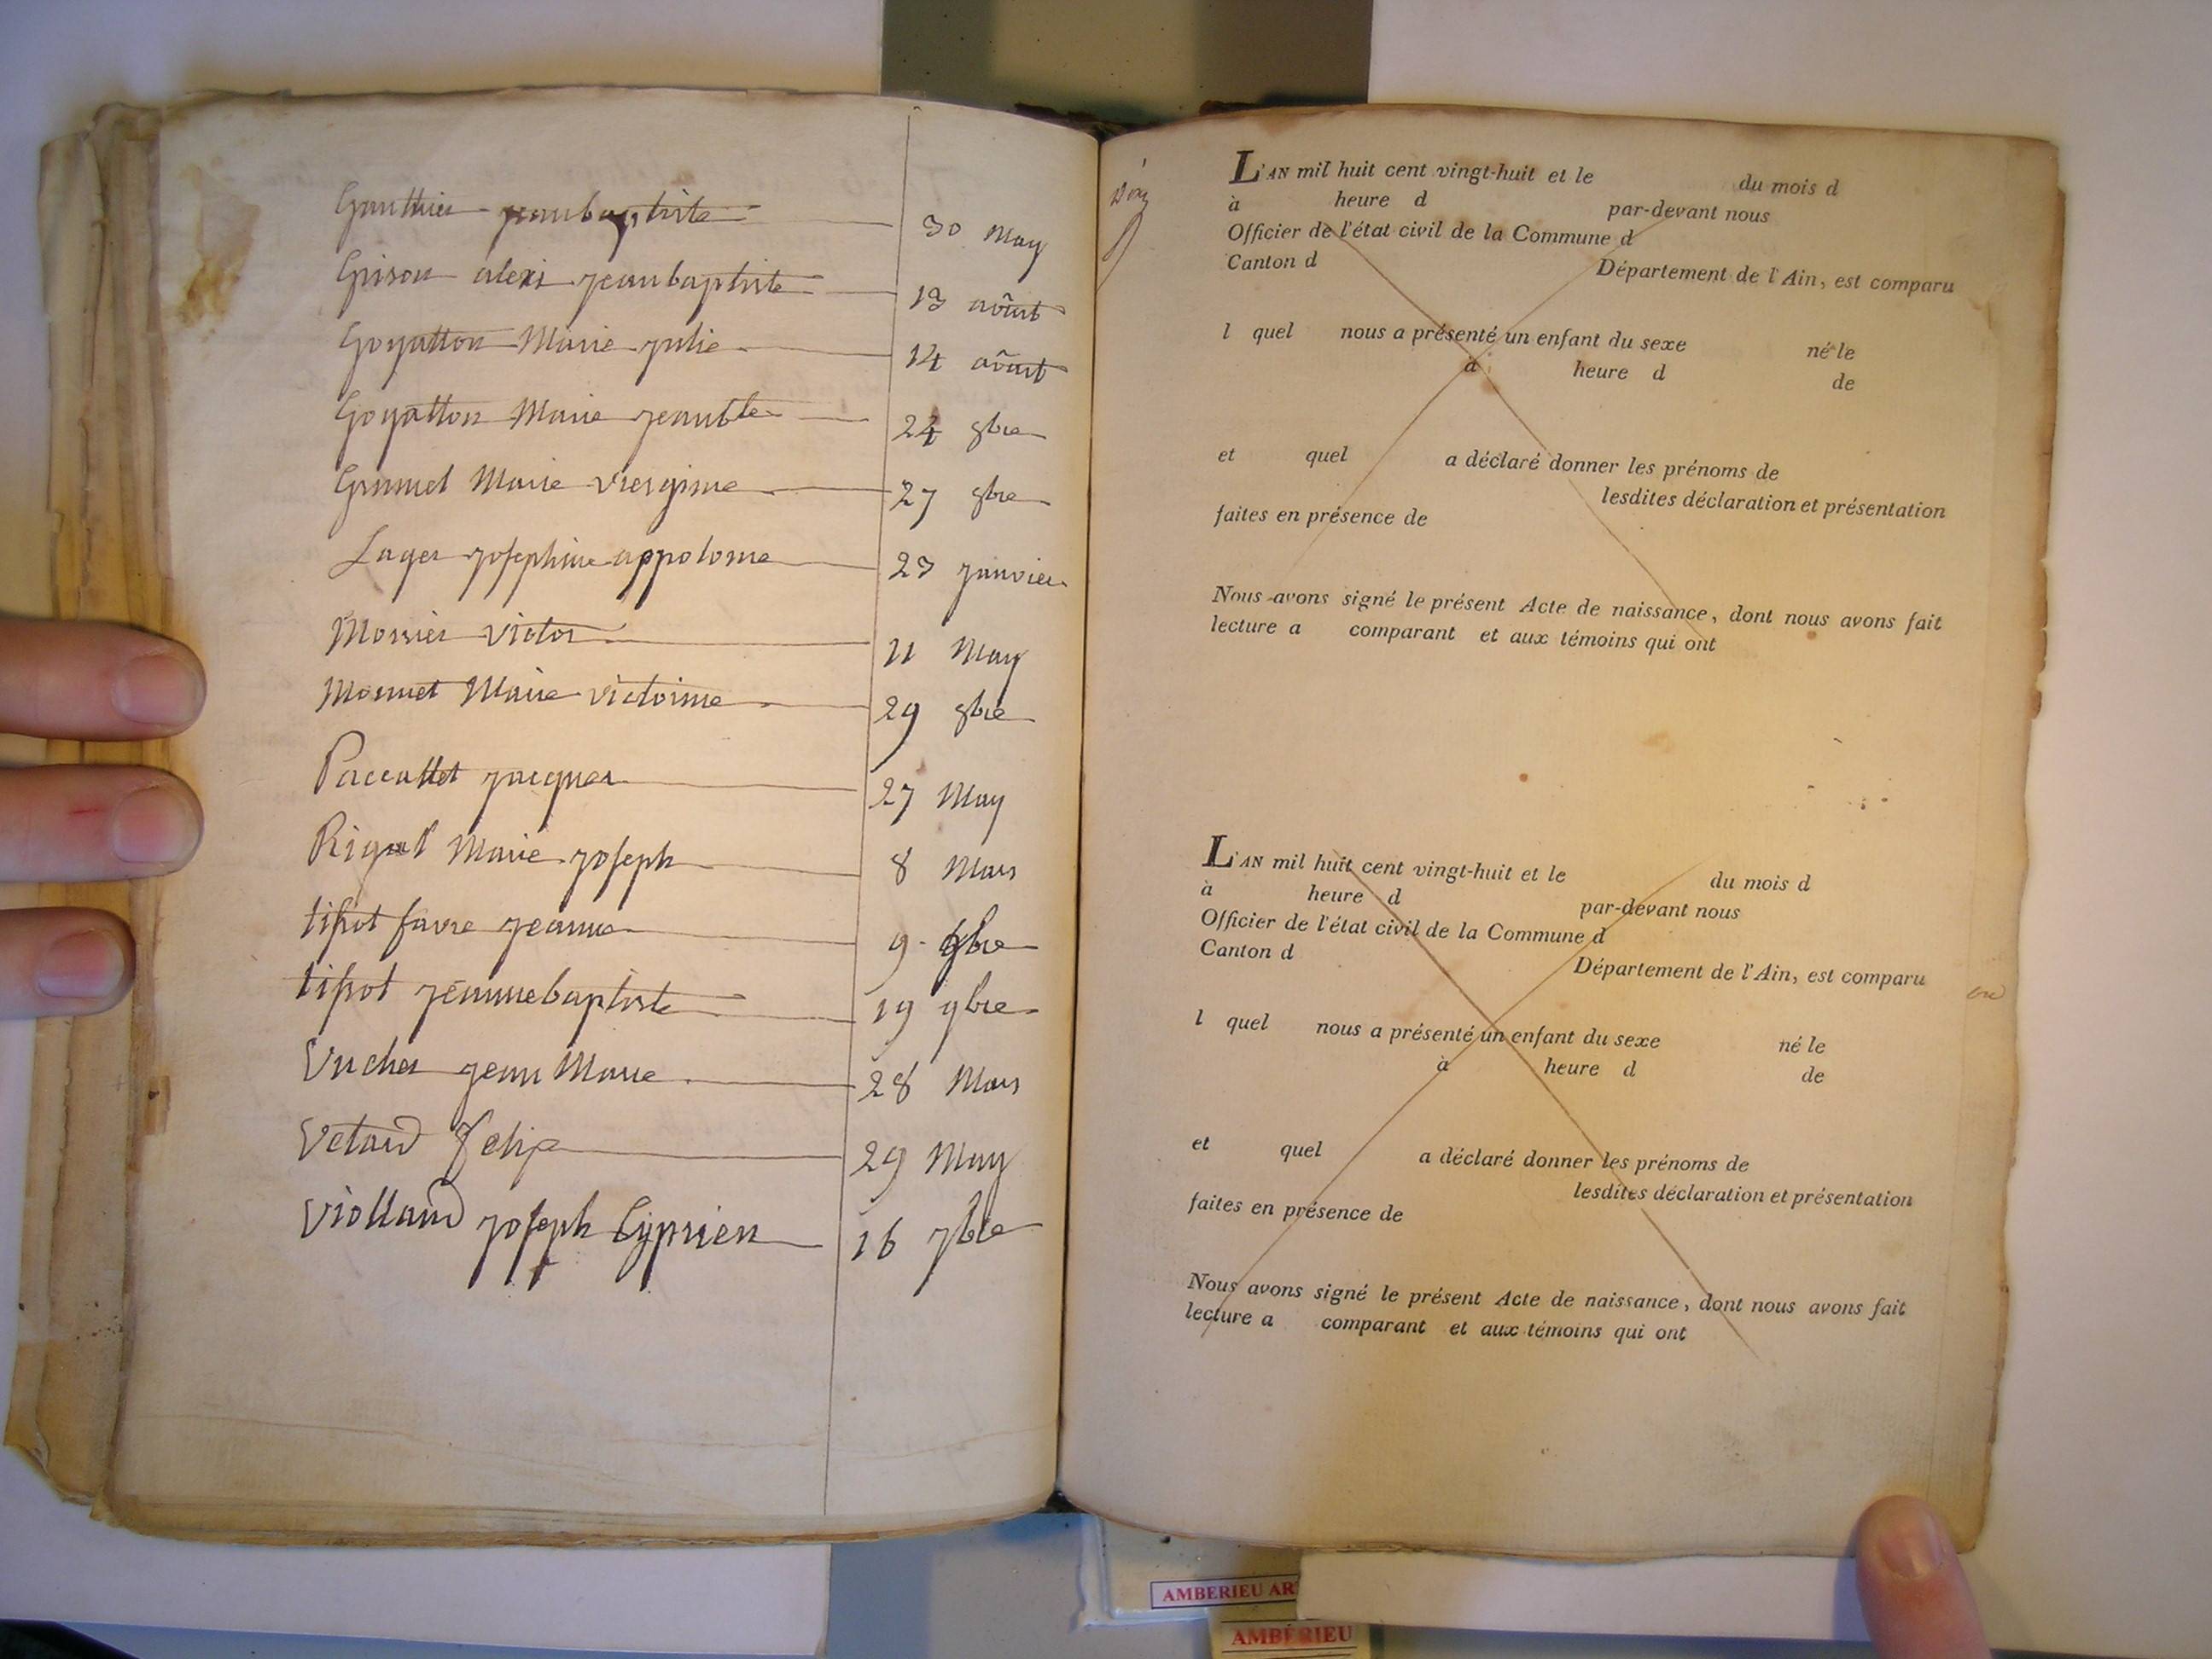 Gauthier jeanbaptiste 30 May
Grison alexi jeanbaptiste 13 août
Goyatton Marie julie 14 août
Goyatton Marie jeanbte 24 8bre
Grumet Marie viergine 27 8bre
Lager josephine appolonie 23 janvier
Mornier victor 11 May
Monnet Marie victorine 29 8bre
Paccallet jacques 27 May
Rigal Marie joseph 8 Mars
tissot favre jeanne 9 9bre
tissot jeannebaptiste 19 9bre
Vucher jean Marie 28 Mars
Vetard felix 29 May
Violland joseph Cyprien 16 7bre
L'AN mil huit cent vingt-huit et le du mois d
à heure d par-devant nous
Officier de l'état civil de la Commune d
Canton d Département de l'Ain, est comparu
l quel nous a présenté un enfant du sexe né le
à heure d de
et quel a déclaré donner les prénoms de
lesdites déclaration et présentation
faites en présence de
Nous avons signé le présent Acte de naissance, dont nous avons fait
lecture a comparant et aux témoins qui ont
L'AN mil huit cent vingt-huit et le du mois d
à heure d par-devant nous
Officier de l'état civil de la Commune d
Canton d Département de l'Ain, est comparu
l quel nous a présenté un enfant du sexe né le
à heure d de
et quel a déclaré donner les prénoms de
lesdites déclaration et présentation
faites en présence de
Nous avons signé le présent Acte de naissance, dont nous avons fait
lecture a comparant et aux témoins qui ont
AMBERIEU AR
AMBÉRIEU